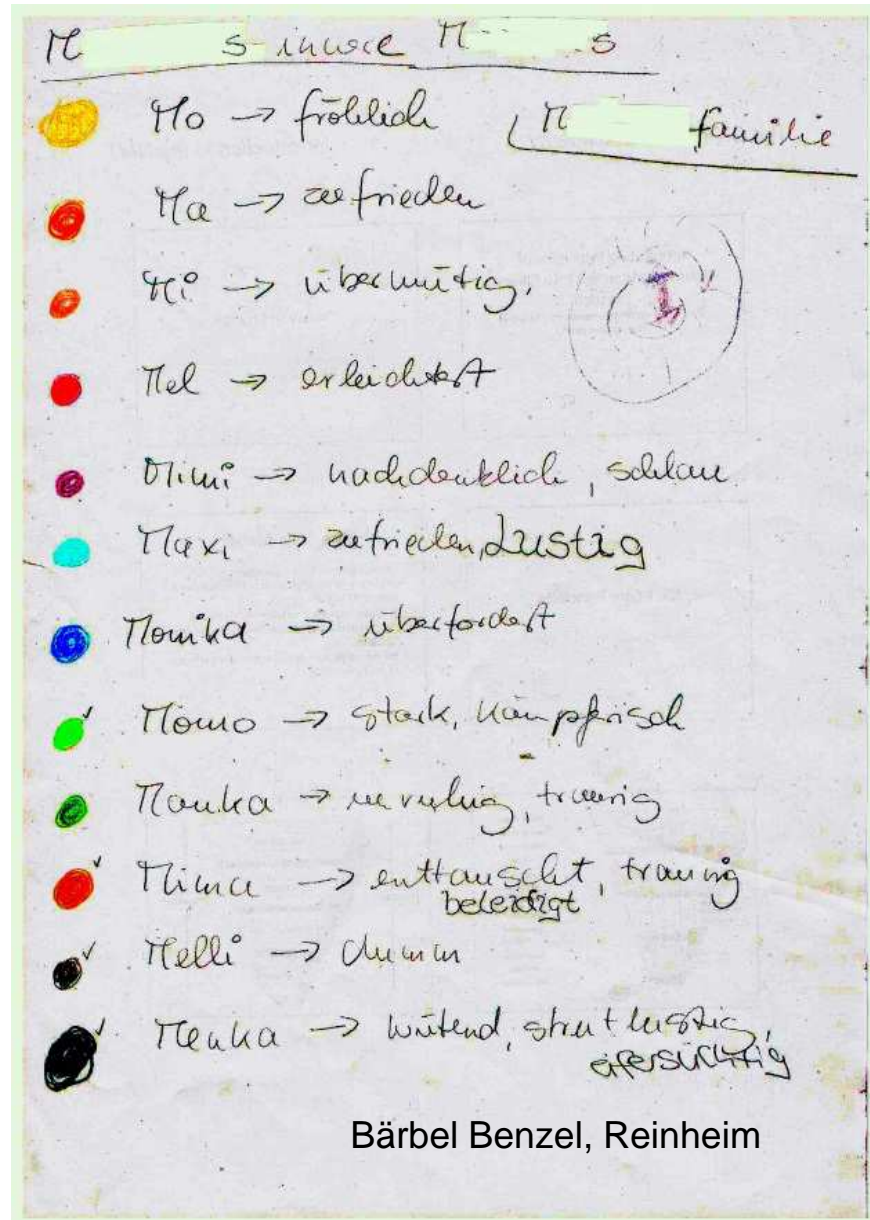 M s innere M s
Mo → fröhlich
M familie
Ma → zufrieden
Mi → übermütig,
Mel → erleichtert
Mimi → nachdenklich, schlau
Maxi → zufrieden, Lustig
Monika → überfordert
Momo → stark, kämpferisch
Manka → unruhig, traurig
Mima → enttäuscht, traurig
beleidigt
Melli → dumm
Menka → wütend, streitlustig,
eifersüchtig
Bärbel Benzel, Reinheim